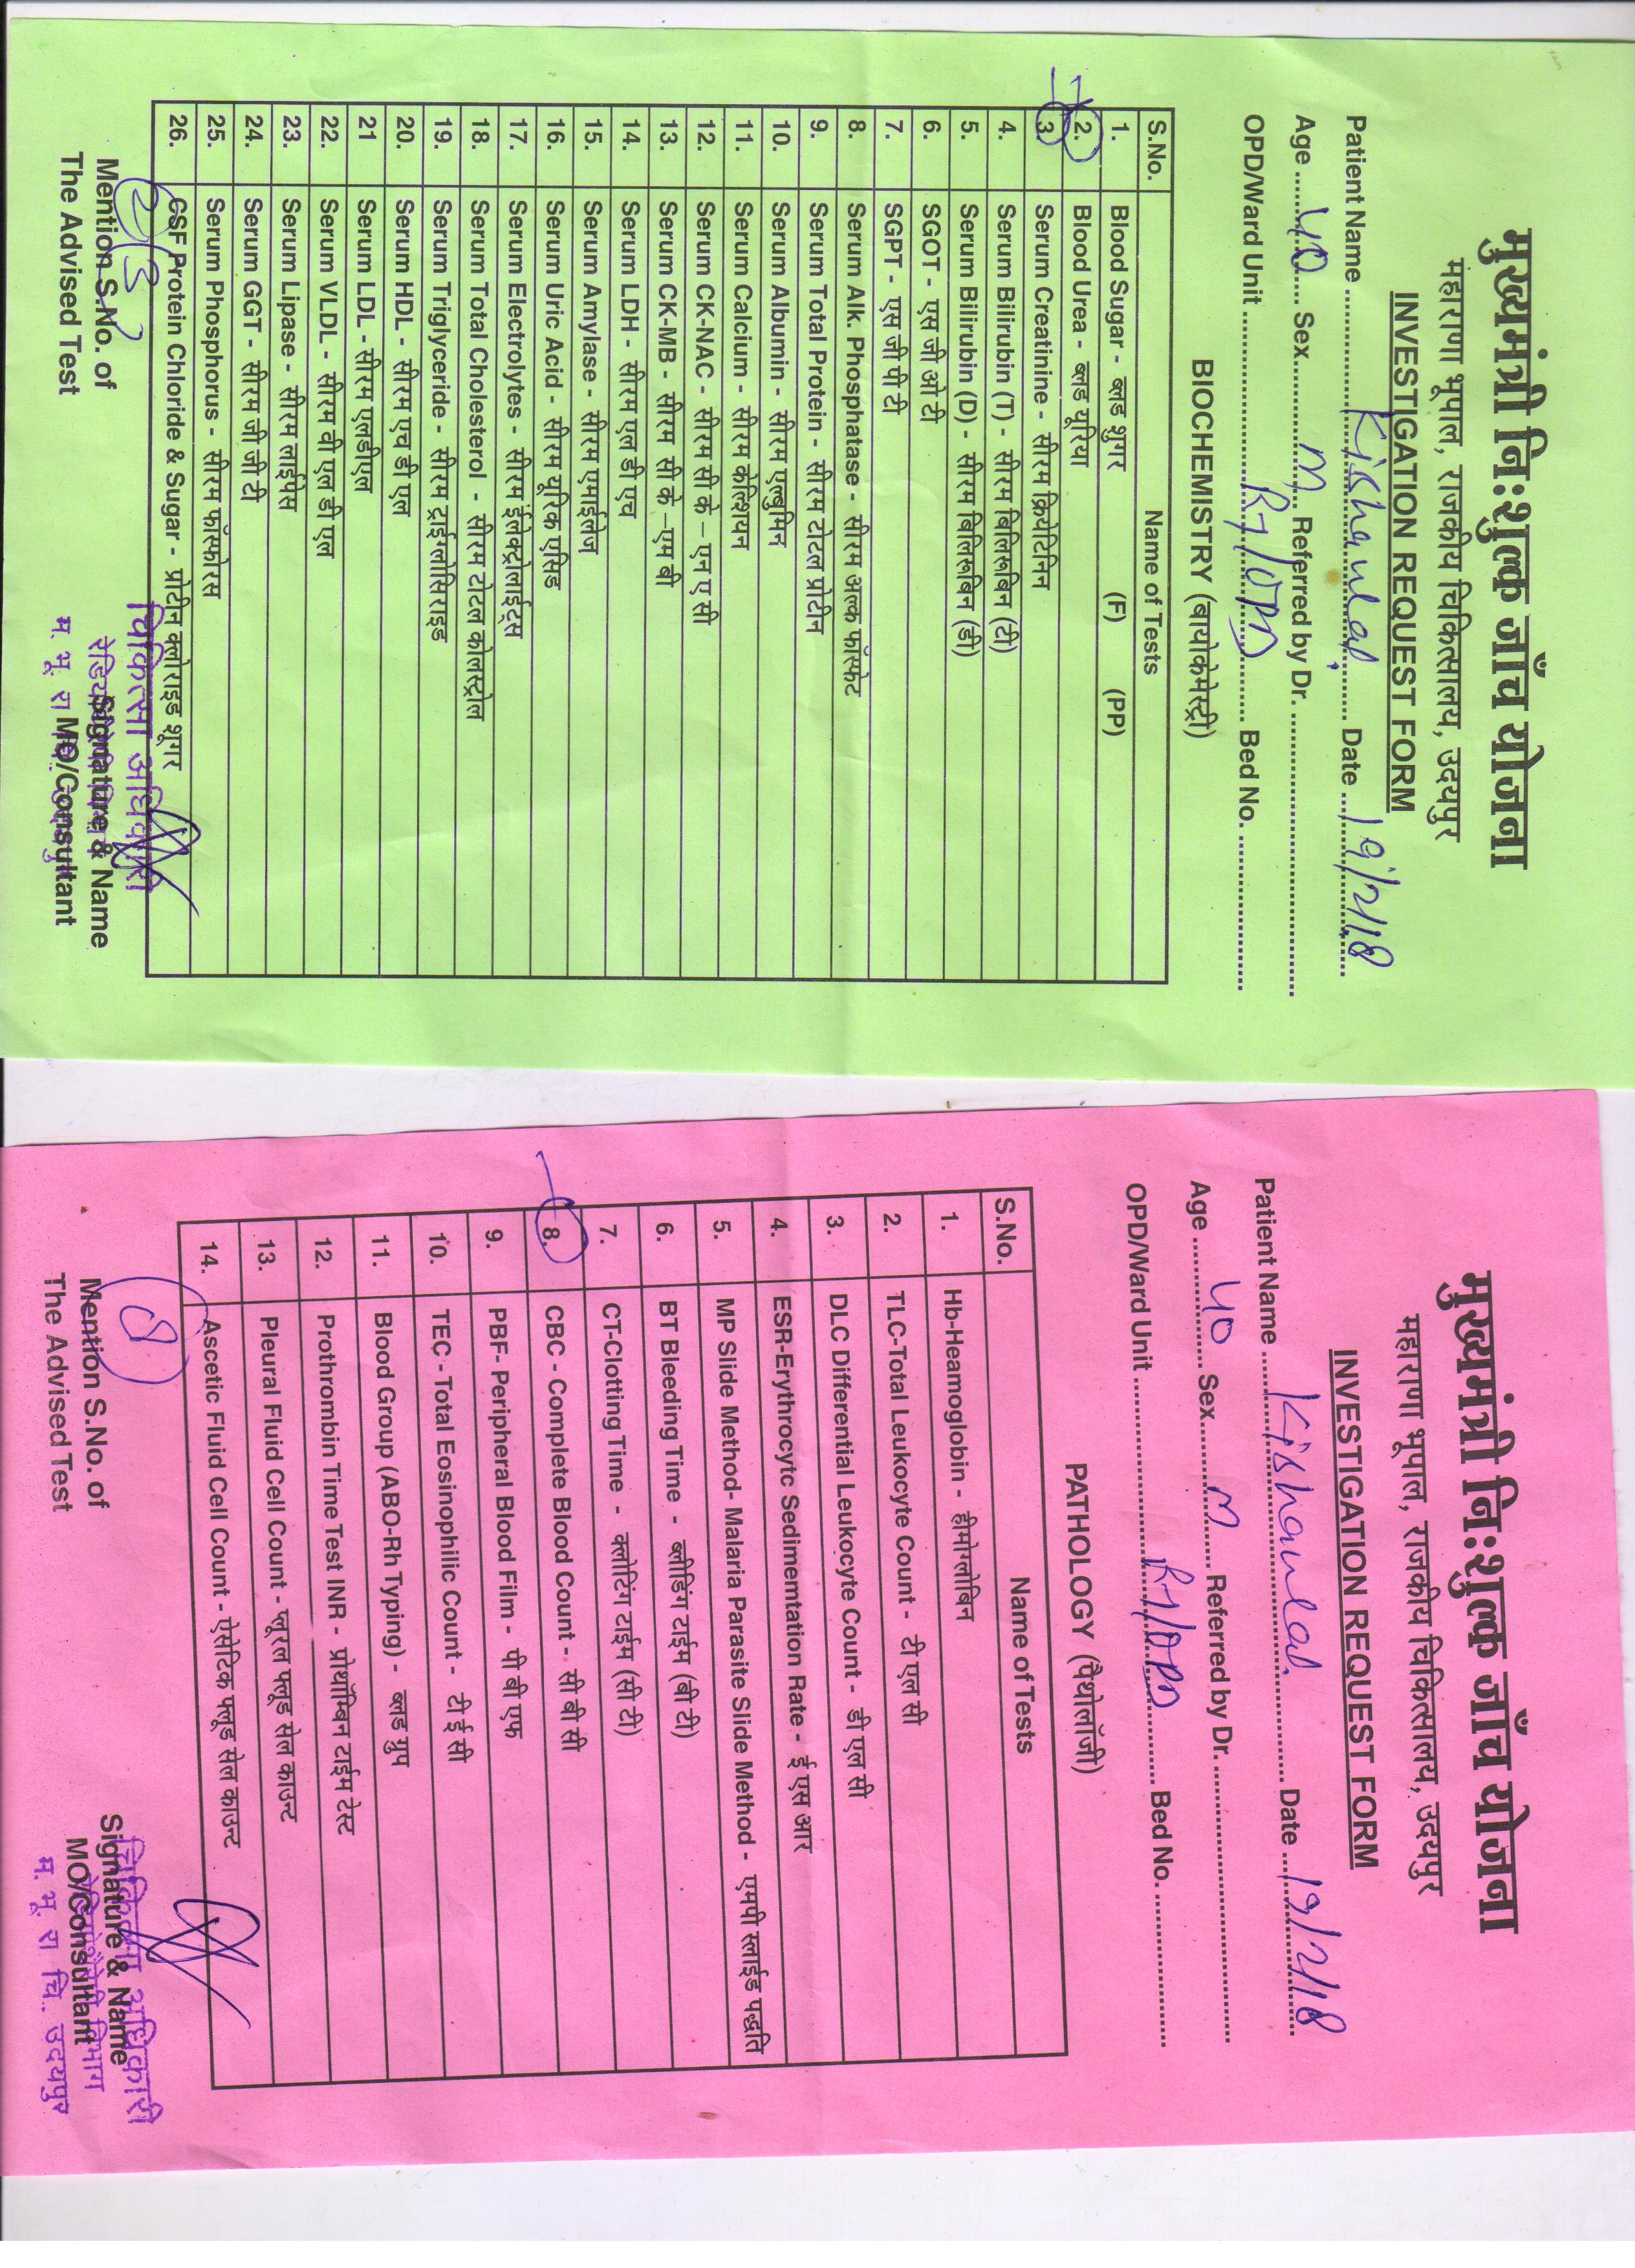 मुख्यमंत्री निःशुल्क जाँच योजना
मंहाराणा भूपाल, राजकीय चिकित्सालय, उदयपुर
INVESTIGATION REQUEST FORM
Patient Name Kishanlal Date 19/2/18
Age 40 Sex M Referred by Dr.
OPD/Ward Unit RT/OPD Bed No.
BIOCHEMISTRY (बायोकेमेस्ट्री)
S.No. Name of Tests
1. Blood Sugar - ब्लड शुगर (F) (PP)
2. Blood Urea - ब्लड यूरिया
3. Serum Creatinine - सीरम क्रियेटिनिन
4. Serum Bilirubin (T) - सीरम बिलिरूबिन (टी)
5. Serum Bilirubin (D) - सीरम बिलिरूबिन (डी)
6. SGOT - एस जी ओ टी
7. SGPT - एस जी पी टी
8. Serum Alk. Phosphatase - सीरम अल्क फॉस्फेट
9. Serum Total Protein - सीरम टोटल प्रोटीन
10. Serum Albumin - सीरम एल्बुमिन
11. Serum Calcium - सीरम केल्शियन
12. Serum CK-NAC - सीरम सी के – एन ए सी
13. Serum CK-MB - सीरम सी के –एम बी
14. Serum LDH - सीरम एल डी एच
15. Serum Amylase - सीरम एमाईलेज
16. Serum Uric Acid - सीरम यूरिक एसिड
17. Serum Electrolytes - सीरम ईलेक्ट्रोलाईट्स
18. Serum Total Cholesterol - सीरम टोटल कोलस्ट्रोल
19. Serum Triglyceride - सीरम ट्राईग्लोसिराइड
20. Serum HDL - सीरम एच डी एल
21 Serum LDL - सीरम एलडीएल
22. Serum VLDL - सीरम वी एल डी एल
23. Serum Lipase - सीरम लाईपेस
24. Serum GGT - सीरम जी जी टी
25. Serum Phosphorus - सीरम फॉस्फोरस
26. CSF Protein Chloride & Sugar - प्रोटीन क्लोराइड शूगर
2/3
चिकित्सा अधिकारी
Mention S.No. of Signature & Name
The Advised Test MO/Consultant
मुख्यमंत्री निःशुल्क जाँच योजना
महाराणा भूपाल, राजकीय चिकित्सालय, उदयपुर
INVESTIGATION REQUEST FORM
Patient Name Kishanlal Date 19/2/18
Age 40 Sex M Referred by Dr.
OPD/Ward Unit RT/OPD Bed No.
PATHOLOGY (पैथोलॉजी)
S.No. Name of Tests
1. Hb-Heamoglobin - हीमोग्लोबिन
2. TLC-Total Leukocyte Count - टी एल सी
3. DLC Differential Leukocyte Count - डी एल सी
4. ESR-Erythrocytc Sedimentation Rate - ई एस आर
5. MP Slide Method- Malaria Parasite Slide Method - एमपी स्लाईड पद्धति
6. BT Bleeding Time - ब्लीडिंग टाईम (बी टी)
7. CT-Clotting Time - क्लोटिंग टाईम (सी टी)
8. CBC - Complete Blood Count - सी बी सी
9. PBF- Peripheral Blood Film - पी बी एफ
10. TEC - Total Eosinophilic Count - टी ई सी
11. Blood Group (ABO-Rh Typing) - ब्लड ग्रुप
12. Prothrombin Time Test INR - प्रोथॉम्बिन टाईम टेस्ट
13. Pleural Fluid Cell Count - प्लूरल फ्लूड सेल काउन्ट
14. Ascetic Fluid Cell Count - ऐसेटिक फ्लूड सेल काउन्ट
8
चिकित्सा अधिकारी
Mention S.No. of Signature & Name
The Advised Test MO/Consultant
म. भू. रा चि. उदयपुर